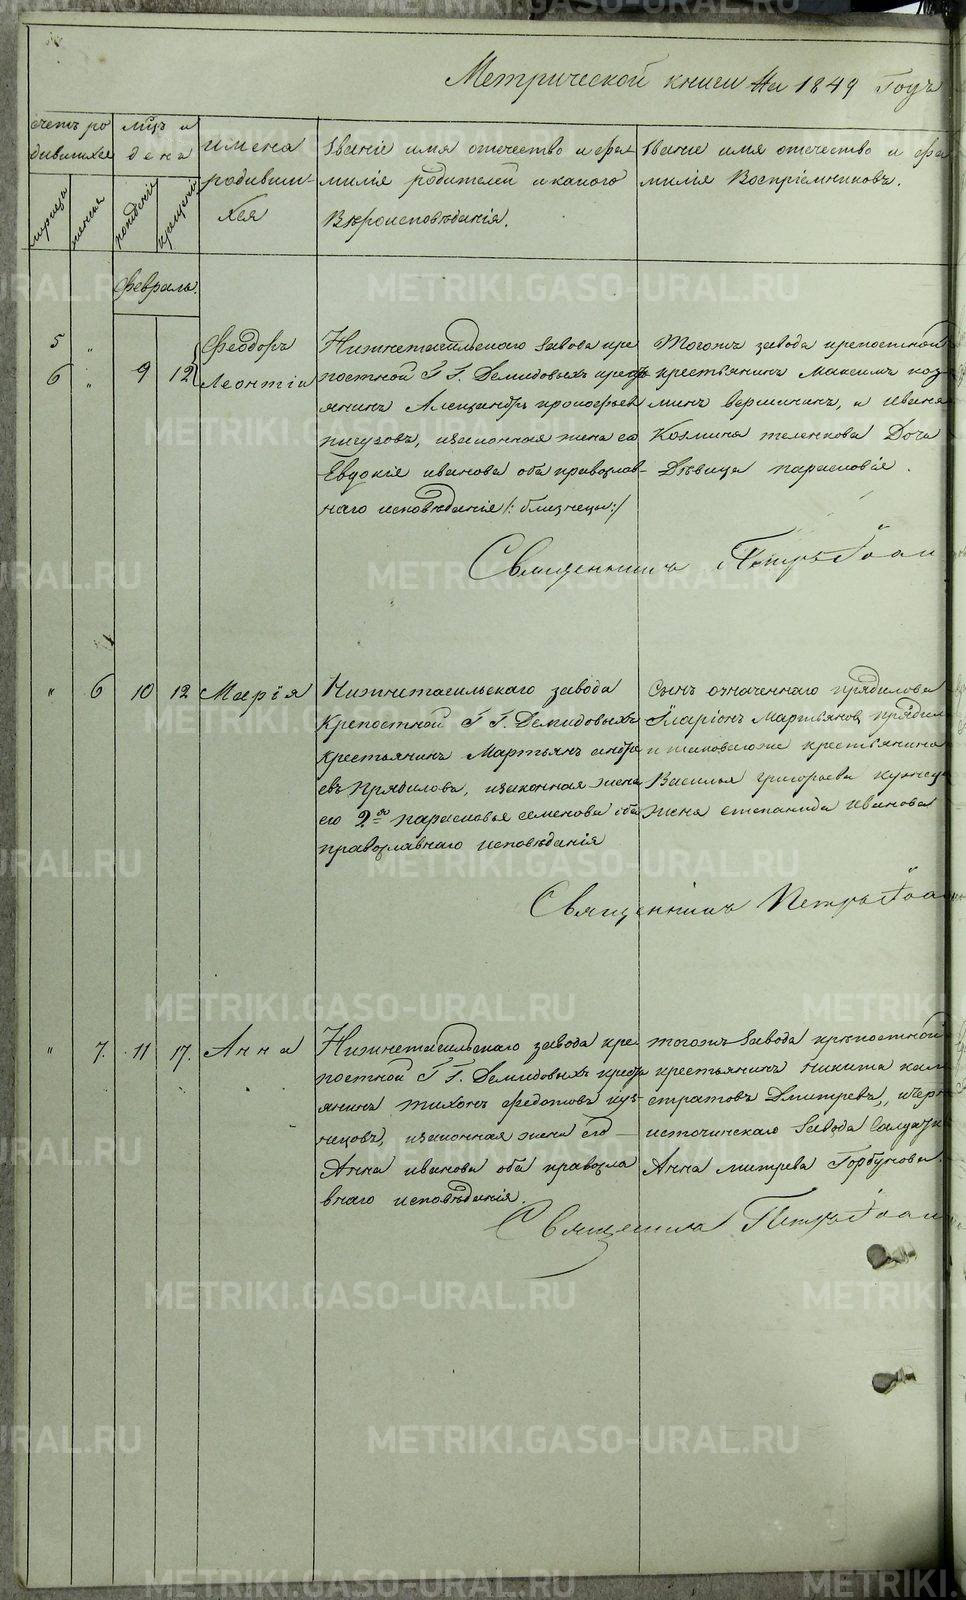 Метрической книги На 1849 Годъ
счетъ ро
дившихся
мужеска
женска
мцъ и
день
рожденія
крещенія
имена
родивши
хся
Званіе имя отечество и фа
милія родителей и какого
Вѣроисповѣданія.
Званіе имя отечество и фа
милія Воспріемниковъ.
Февраль.
5 "
6 "
9 12
Феодоръ
Леонтій
Нижнетагильскаго завода кре
постной Г Г. Демидовыхъ крест
янинъ Александръ прокофьев
пигузовъ, изаконная жена его
Евдокія иванова оба православ-
наго исповѣданія /: близнецы :/
Тогожъ завода крепостной
крестьянинъ Максимъ коз
минъ вершининъ, и Ивана
Козмина теленкова Дочь
Дѣвица парасковія.
Священникъ Петръ Іоан
" 6 10 12 Марія
Нижнетагильскаго завода
Крепостной Г Г. Демидовыхъ
крестьянинъ Мартьянъ андре
евъ Прядилова, изаконная жена
его 2я парасковья семенова оба
православнаго исповѣданія
Сынъ означеннаго прядилова
Иларіонъ Мартьяновъ прядил
и таковагоже крестьянина
Василья григорьева кузнецо
жена степанида иванова
Священникъ Петръ Іоан
" 7. 11 17. Анна
Нижнетагильскаго завода кре
постной Г Г. Демидовыхъ крест
янинъ тихонъ федотовъ куз-
нецовъ, изаконная жена его
Анна иванова оба правосла
внаго исповѣданія.
тогожъ завода крѣпостной
крестьянинъ никита кали
стратовъ Дмитревъ, и черно
источинскаго завода
Анна митрева Горбунова.
Священникъ Петръ Іоан
METRIKI.GASO-URAL.RU